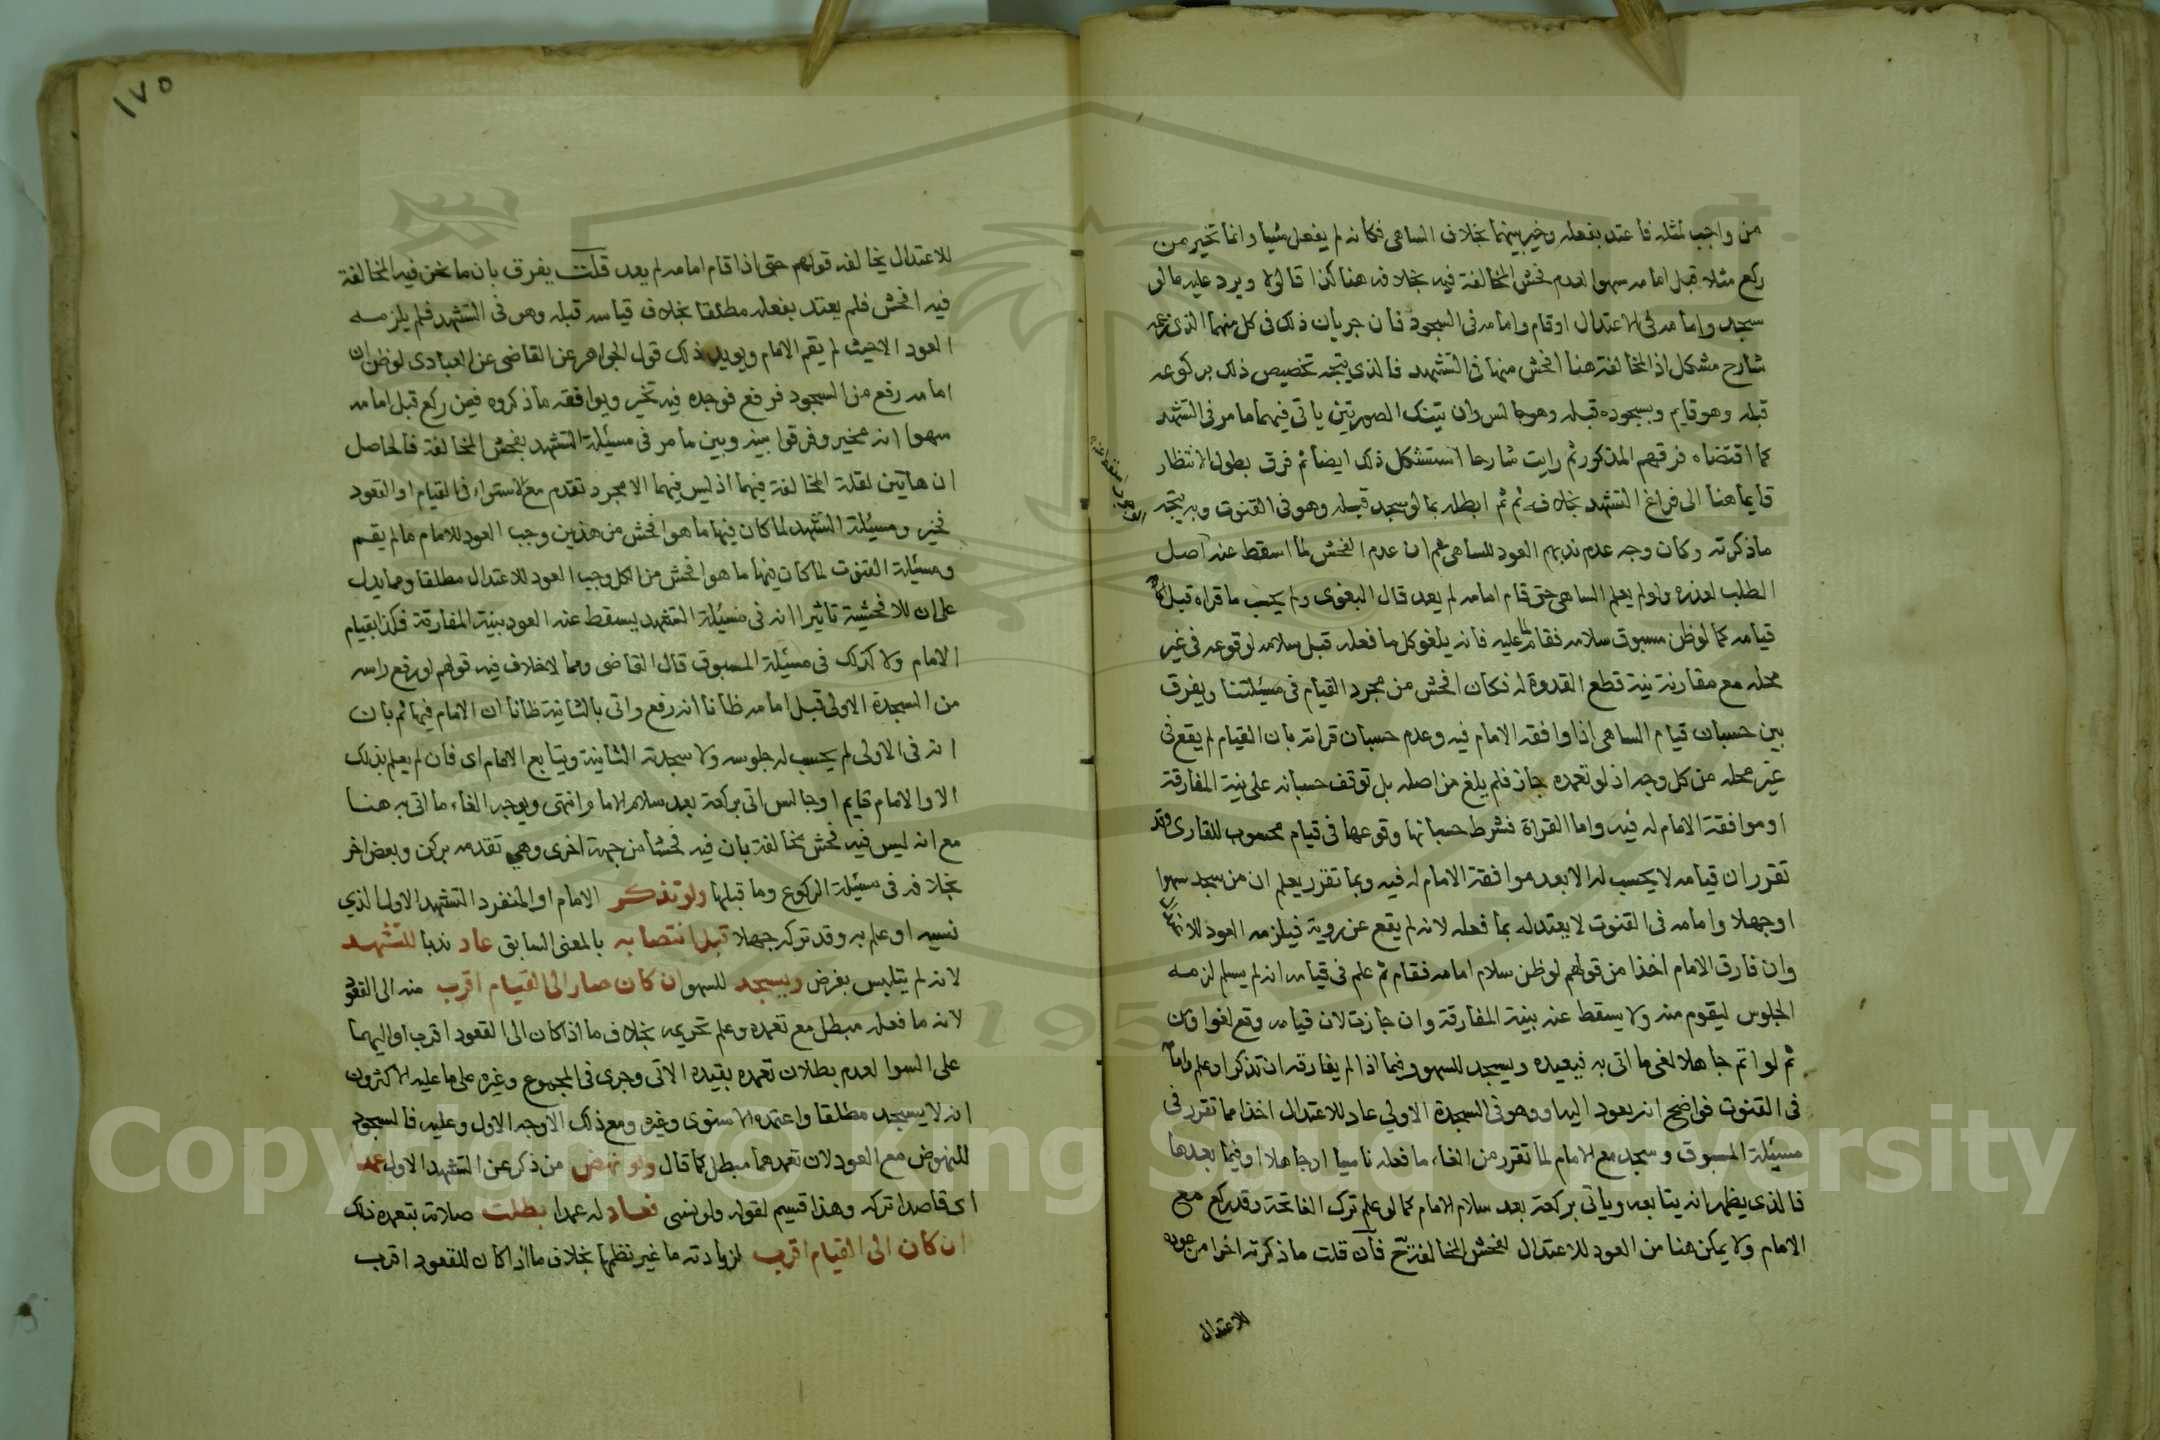 من واجب لمثله فاعتد بفعله وخير بينهما بخلاف الساهي فكانه لم يفعل شيا وانما تخير من
ركع مثلا قبل امامه سهوا لعدم فحش المخالفة فيه بخلافه هنا كذا قالوه ويرد عليه ما لو
سجد وامامه في الاعتدال او قام وامامه في السجود فان جريان ذلك في كل منهما الذي زعمه
شارح مشكل اذ المخالفة هنا افحش منها في التشهد فالذي يتجه تخصيص ذلك بركوعه
قبله وهو قايم وبسجوده قبله وهو جالس وان تينك الصورتين ياتي فيهما ما مر في التشهد
كما اقتضاه فرقهم المذكور ثم رايت شارحا استشكل ذلك ايضا ثم فرق بطول الانتظار
قايما هنا الى فراغ التشهد بخلافه ثم ثم ابطله بما لو سجد قبله وهو في القنوت وبه يتجه
ماذكرته وكان وجه عدم ندبهم العود للساهي ثم ان عدم الفحش لما اسقط عنه اصل
الطلب لعذره ولو لم يعلم الساهي حتى قام امامه لم يعد قال البغوي ولم يحسب ما قراه قبل
قيامه كما لو ظن مسبوق سلامه فقام لما عليه فانه يلغو كل ما فعله قبل سلامه لوقوعه في غير
محله مع مقارنة نية قطع القدوة له فكان افحش من مجرد القيام في مسئلتنا ويفرق
بين حسبان قيام الساهي اذا وافقه الامام فيه وعدم حسبان قراته بان القيام لم يقع في
غير محله من كل وجه اذ لو تعمده جاز فلم يلغ من اصله بل توقف حسبانه على نية المفارقة
او موافقة الامام له فيه واما القراة فشرط حسبانها وقوعها في قيام محسوب للقارى وقد
تقرر ان قيامه لا يحسب له الا بعد موافقة الامام له فيه وبما تقرر يعلم ان من سجد سهوا
او جهلا وامامه في القنوت لا يعتد له بما فعله لانه لم يقع عن روية فيلزمه العود للاعتدال
وان فارق الامام اخذا من قولهم لو ظن سلام امامه فقام ثم علم في قيامه انه لم يسلم لزمه
الجلوس ليقوم منه ولا يسقط عنه بنية المفارقة وان جازت لان قيامه وقع لغوا ومن
ثم لو اتم جاهلا لغى ما اتى به فيعيده ويسجد للسهو وفيما اذا لم يفارقه ان تذكر او علم وامامه
في القنوت فواضح انه يعود اليه او وهو في السجدة الاولى عاد للاعتدال اخذا مما تقرر في
مسئلة المسبوق وسجد مع الامام لما تقرر من الغاء ما فعله ناسيا او جاهلا او فيما بعدها
فالذي يظهر انه يتابعه وياتي بركعة بعد سلام الامام كما لو علم ترك الفاتحة وقد ركع مع
الامام ولا يمكن هنا من العود للاعتدال لفحش المخالفة ح فان قلت ماذكرته اخرا من عوده
للاعتدال
١٧٥
للاعتدال يخالفه قولهم حتى اذا قام امامه لم يعد قلت يفرق بان ما نحن فيه المخالفة
فيه افحش فلم يعتد بفعله مطلقا بخلاف قيامه قبله وهو في التشهد فلم يلزمه
العود الا حيث لم يقم الامام ويويد ذلك قول الجواهر عن القاضي عن العبادي لو ظن ان
امامه رفع من السجود فرفع فوجده فيه تخير ويوافقه ماذكروه فيمن ركع قبل امامه
سهوا انه مخير وفرقوا بينه وبين ما مر في مسئلة التشهد بفحش المخالفة فالحاصل
ان هاتين لقلة المخالفة فيهما اذ ليس فيهما الا مجرد تقدم مع الاستواء في القيام او القعود
تخير ومسئلة التشهد لما كان فيها ما هو افحش من هذين وجب العود للامام ما لم يقم
ومسئلة القنوت لما كان فيها ما هو افحش من الكل وجب العود للاعتدال مطلقا ومما يدل
على ان للافحشية تاثيرا انه في مسئلة التشهد يسقط عنه العود بنية المفارقة فكذا بقيام
الامام ولا كذلك في مسئلة المسبوق قال القاضي ومما لا خلاف فيه قولهم لو رفع راسه
من السجدة الاولى قبل امامه ظانا انه رفع واتى بالثانية ظانا ان الامام فيها ثم بان
انه في الاولى لم يحسب له جلوسه ولا سجدته الثانية ويتابع الامام اى فان لم يعلم بذلك
الا والامام قايم او جالس اتى بركعة بعد سلام الامام انتهى ويوجه الغاء ما اتى به هنا
مع انه ليس فيه فحش مخالفة بان فيه فحشا من جهة اخرى وهي تقدمه بركن وبعض اخر
بخلافه في مسئلة الركوع وما قبلها ولو تذكر الامام او المنفرد التشهد الاول الذي
نسيه او علم به وقد تركه جهلا قبل انتصابه بالمعنى السابق عاد ندبا للتشهد
لانه لم يتلبس بفرض ويسجد للسهو ان كان صار الى القيام اقرب منه الى القعود
لانه ما فعله مبطل مع تعمده وعلم تحريمه بخلاف ما اذا كان الى القعود اقرب او اليهما
على السوا لعدم بطلان تعمده بقيده الاتي وجرى في المجموع وغيره على ما عليه الاكثرون
انه لا يسجد مطلقا واعتمده الاسنوى وغيره ومع ذلك الاوجه الاول وعليه فالسجود
للنهوض مع العود لان تعمدهما مبطل كما قال ولو نهض من ذكر عن التشهد الاول عمدا
اى قاصدا تركه وهذا قسيم لقوله ولو نسى فعاد له عمدا بطلت صلاته بتعمده ذلك
ان كان الى القيام اقرب لزيادته ما غير نظمها بخلاف ما اذا كان للقعود اقرب
Copyright © King Saud University
1957